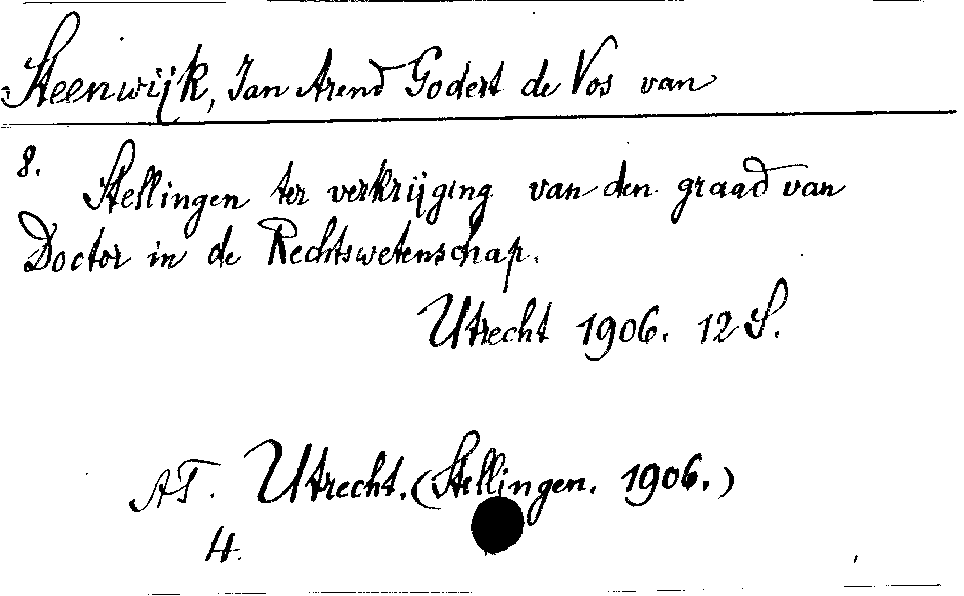 Steenwijk, Jan Arend Godert de Vos van
8.
Stellingen ter verkrijging van den graad van
Doctor in de Rechtswetenschap.
Utrecht 1906. 12 S.
AT. Utrecht. (Stellingen. 1906.)
4.